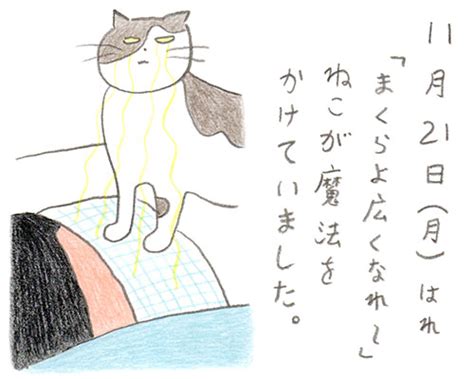 11月21日(月)はれ
「まくらよ広くなれ〜」
ねこが魔法を
かけていました。